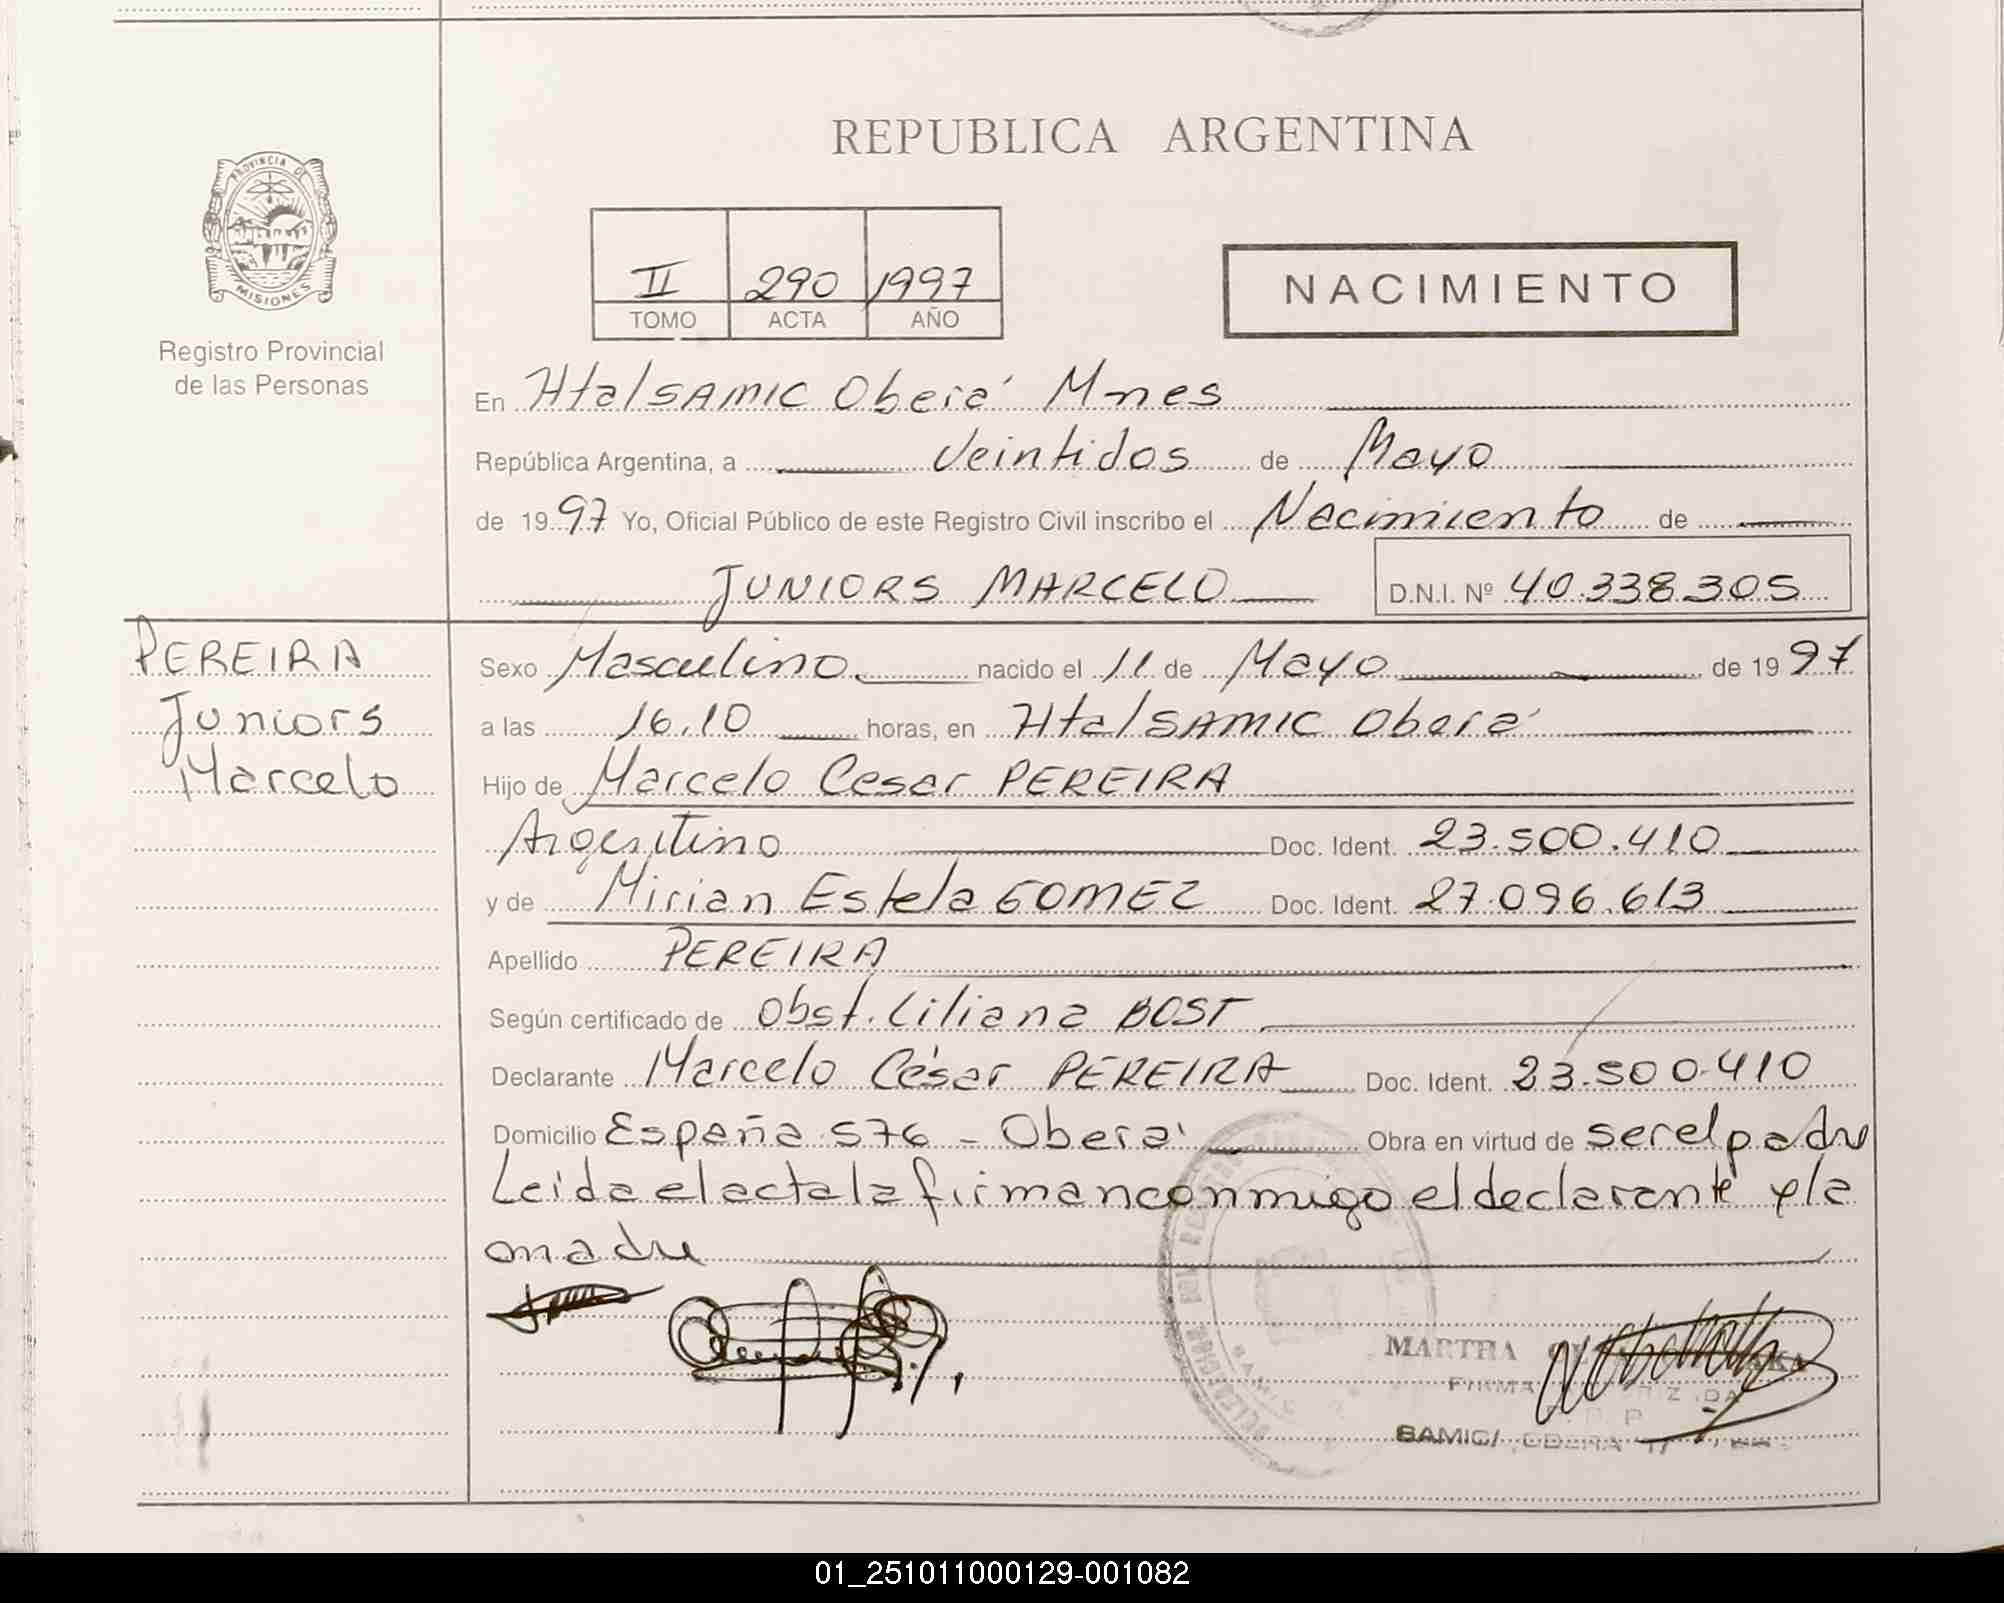 REPUBLICA ARGENTINA
PROVINCIA DE
MISIONES
Registro Provincial
de las Personas
II 290 1997
TOMO ACTA AÑO
NACIMIENTO
En Htal SAMIC Oberá Mnes
República Argentina, a Veintidos de Mayo
de 1997 Yo, Oficial Público de este Registro Civil inscribo el Nacimiento de
JUNIORS MARCELO D.N.I. Nº 40.338.305
PEREIRA
Juniors
Marcelo
Sexo Masculino nacido el 11 de Mayo de 1997
a las 16.10 horas, en Htal SAMIC Oberá
Hijo de Marcelo Cesar PEREIRA
Argentino Doc. Ident. 23.500.410
y de Mirian Estela GOMEZ Doc. Ident. 27.096.613
Apellido PEREIRA
Según certificado de Obst. Liliana BOST
Declarante Marcelo César PEREIRA Doc. Ident. 23.500.410
Domicilio España 576 - Oberá Obra en virtud de ser el padre
Leida el acta la firman conmigo el declarante y la
madre
MARTHA
FIRMA
SAMIC/ OBERA
01_251011000129-001082